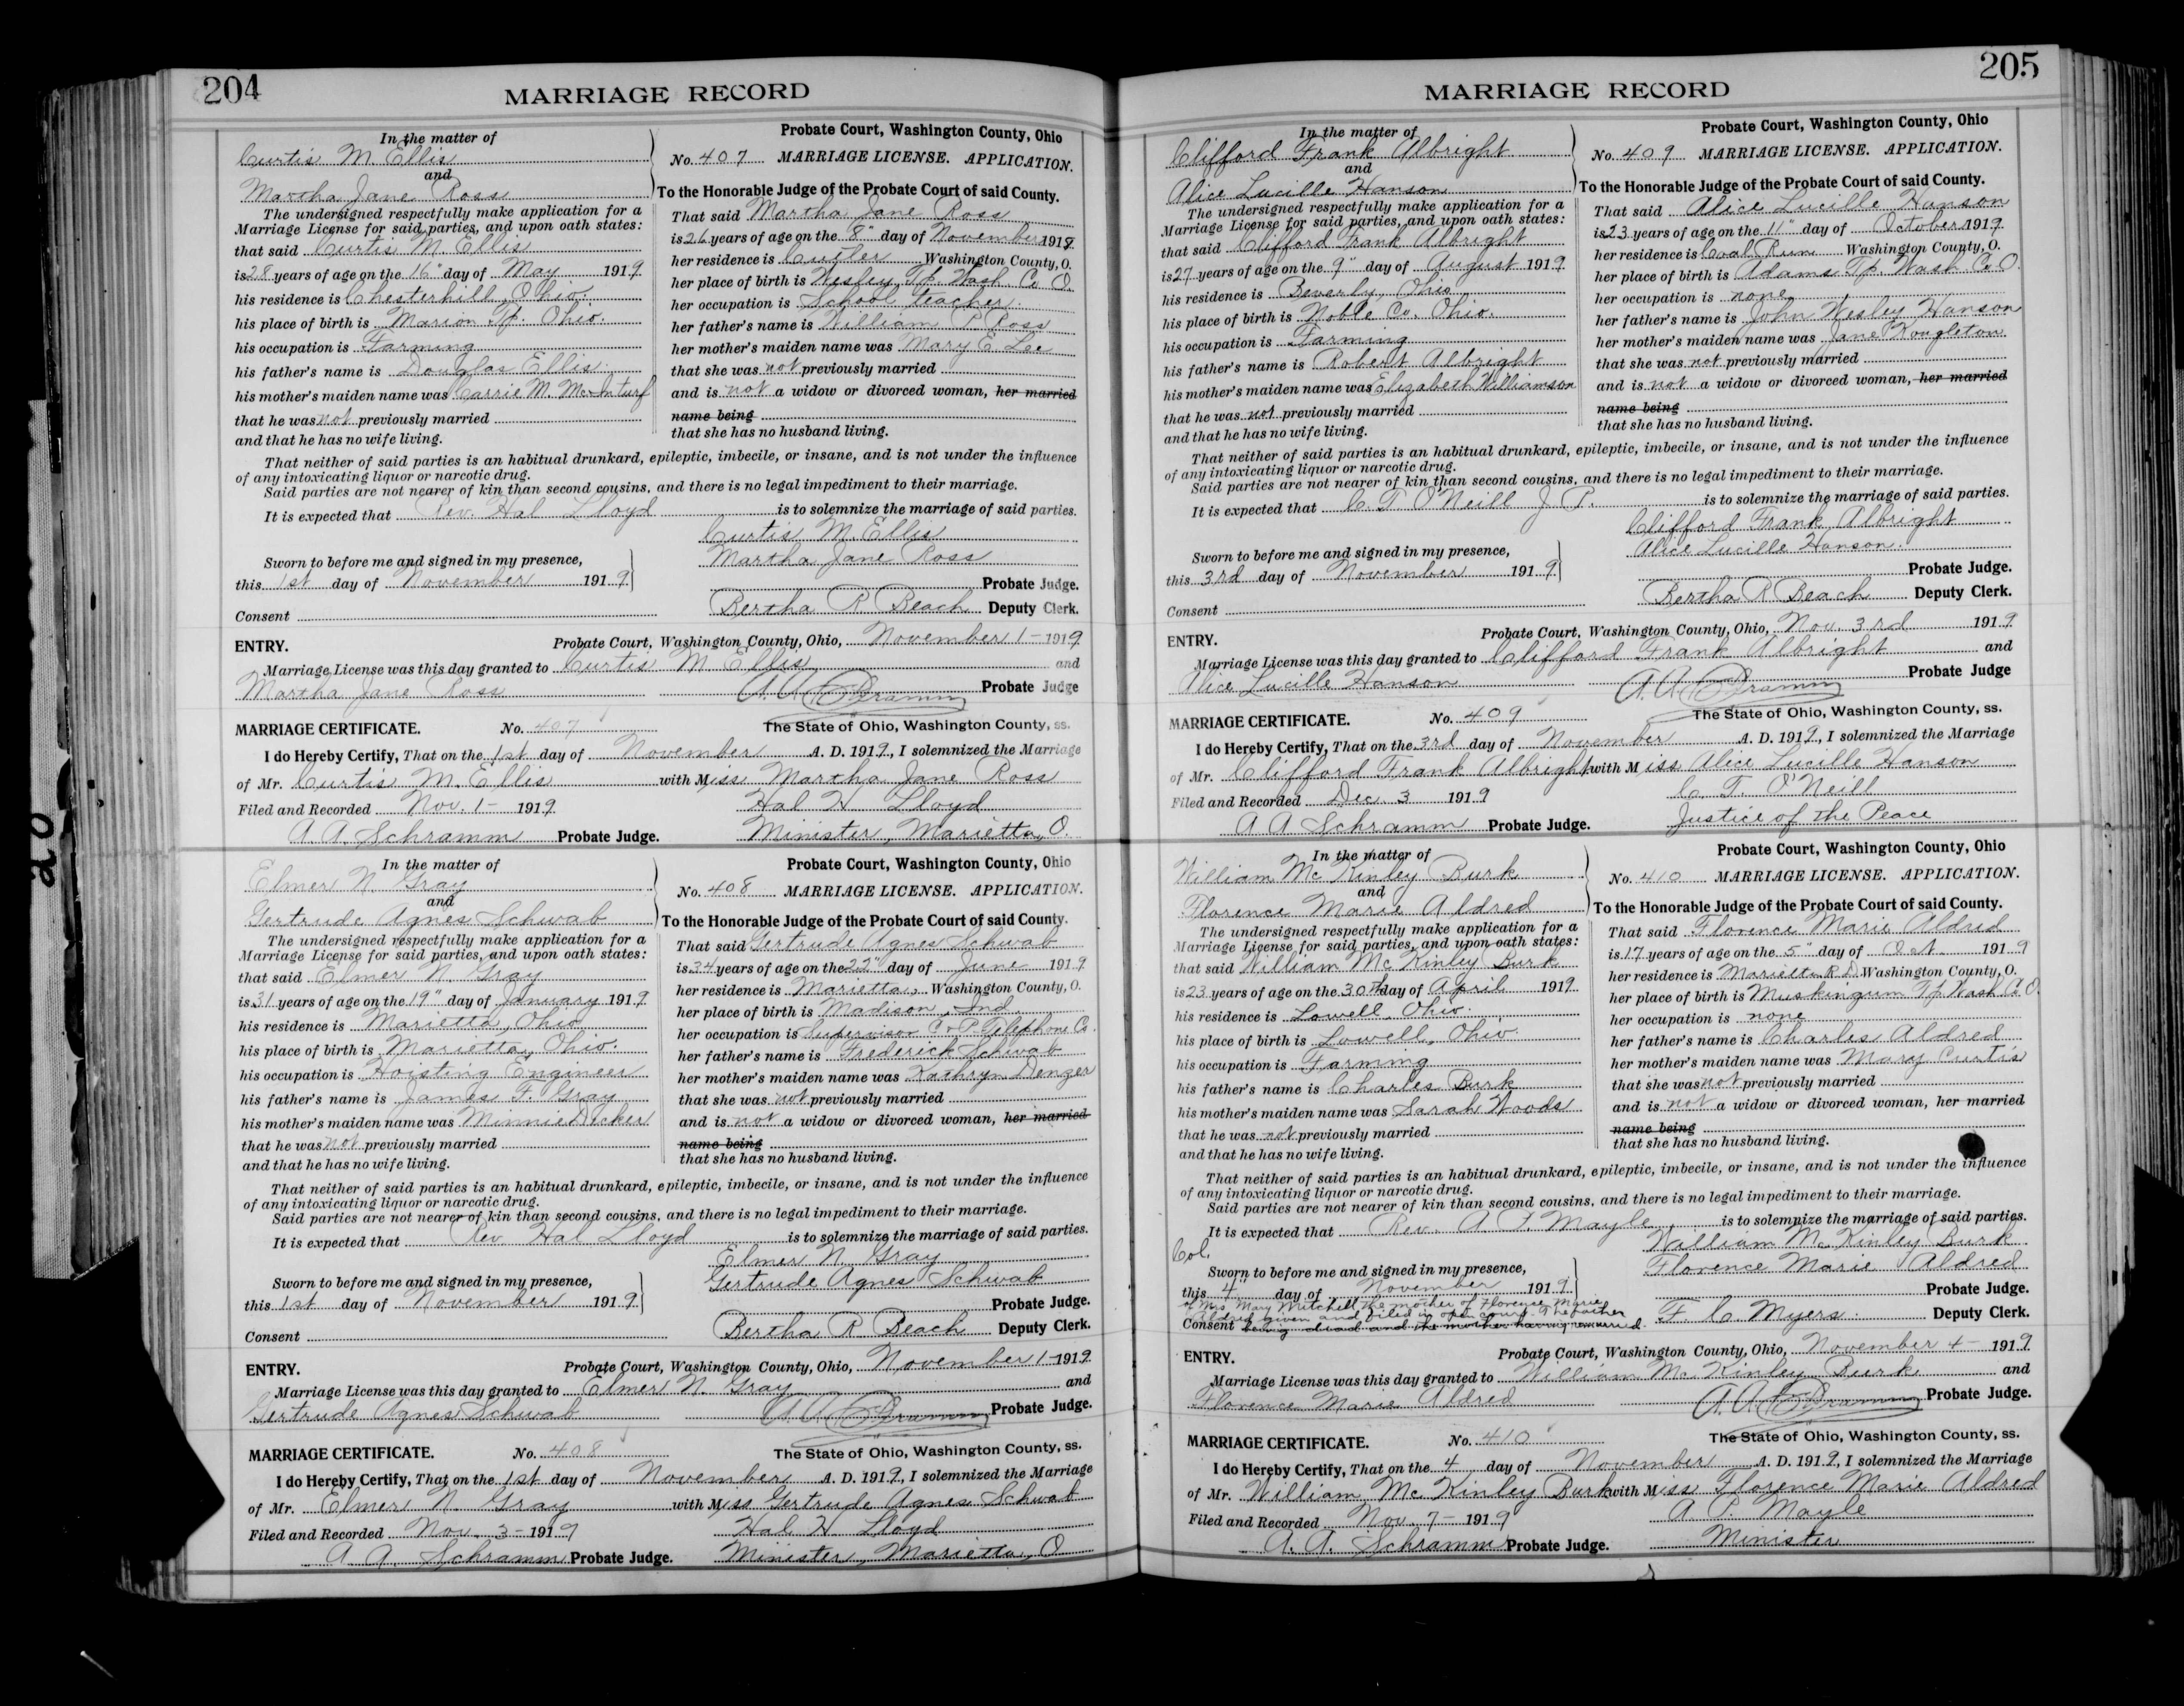 204
MARRIAGE RECORD
In the matter of
Curtis M. Ellis
and
Martha Jane Ross
The undersigned respectfully make application for a
Marriage License for said parties, and upon oath states:
that said Curtis M. Ellis
is 28 years of age on the 16" day of May 1919
his residence is Chesterhill, Ohio.
his place of birth is Marion Tp. Ohio.
his occupation is Farming
his father's name is Douglas Ellis
his mother's maiden name was Carrie M. McInturf
that he was not previously married
and that he has no wife living.
Probate Court, Washington County, Ohio
No. 407 MARRIAGE LICENSE. APPLICATION.
To the Honorable Judge of the Probate Court of said County.
That said Martha Jane Ross
is 26 years of age on the 8" day of November 1918.
her residence is Cutler Washington County, O.
her place of birth is Wesley Tp. Wash. Co. O.
her occupation is School teacher.
her father's name is William P. Ross
her mother's maiden name was Mary E. Lee
that she was not previously married
and is not a widow or divorced woman, her married
name being
that she has no husband living.
That neither of said parties is an habitual drunkard, epileptic, imbecile, or insane, and is not under the influence
of any intoxicating liquor or narcotic drug.
Said parties are not nearer of kin than second cousins, and there is no legal impediment to their marriage.
It is expected that Rev. Hal Lloyd is to solemnize the marriage of said parties.
Curtis M. Ellis
Martha Jane Ross
Sworn to before me and signed in my presence,
this 1st day of November 1919
Probate Judge.
Consent
Bertha R Beach Deputy Clerk.
ENTRY. Probate Court, Washington County, Ohio, November 1- 1919
Marriage License was this day granted to Curtis M. Ellis and
Martha Jane Ross A. A. Schramm Probate Judge
MARRIAGE CERTIFICATE. No. 407 The State of Ohio, Washington County, ss.
I do Hereby Certify, That on the 1st day of November A. D. 1919, I solemnized the Marriage
of Mr. Curtis M. Ellis with Miss Martha Jane Ross
Filed and Recorded Nov. 1- 1919. Hal H. Lloyd
A. A. Schramm Probate Judge. Minister, Marietta, O.
In the matter of
Elmer N. Gray
and
Gertrude Agnes Schwab
The undersigned respectfully make application for a
Marriage License for said parties, and upon oath states:
that said Elmer N. Gray
is 31 years of age on the 19" day of January 1919
his residence is Marietta, Ohio
his place of birth is Marietta, Ohio.
his occupation is Hoisting Engineer
his father's name is James F. Gray
his mother's maiden name was Minnie Decker
that he was not previously married
and that he has no wife living.
Probate Court, Washington County, Ohio
No. 408 MARRIAGE LICENSE. APPLICATION.
To the Honorable Judge of the Probate Court of said County.
That said Gertrude Agnes Schwab
is 34 years of age on the 22" day of June 1919
her residence is Marietta, Washington County, O.
her place of birth is Madison, Ind.
her occupation is Supervisor C. & P. Telephone Co.
her father's name is Frederick Schwab
her mother's maiden name was Kathryn Denger
that she was not previously married
and is not a widow or divorced woman, her married
name being
that she has no husband living.
That neither of said parties is an habitual drunkard, epileptic, imbecile, or insane, and is not under the influence
of any intoxicating liquor or narcotic drug.
Said parties are not nearer of kin than second cousins, and there is no legal impediment to their marriage.
It is expected that Rev. Hal Lloyd is to solemnize the marriage of said parties.
Elmer N. Gray
Gertrude Agnes Schwab
Sworn to before me and signed in my presence,
this 1st day of November 1919.
Probate Judge.
Consent
Bertha R. Beach Deputy Clerk.
ENTRY. Probate Court, Washington County, Ohio, November 1- 1919
Marriage License was this day granted to Elmer N. Gray and
Gertrude Agnes Schwab A. A. Schramm Probate Judge.
MARRIAGE CERTIFICATE. No. 408 The State of Ohio, Washington County, ss.
I do Hereby Certify, That on the 1st day of November A. D. 1919, I solemnized the Marriage
of Mr. Elmer N. Gray with Miss Gertrude Agnes Schwab
Filed and Recorded Nov. 3- 1919 Hal H Lloyd
A. A. Schramm Probate Judge. Minister, Marietta, O
205
MARRIAGE RECORD
In the matter of
Clifford Frank Albright
and
Alice Lucille Hanson
The undersigned respectfully make application for a
Marriage License for said parties, and upon oath states:
that said Clifford Frank Albright
is 27 years of age on the 9" day of August 1919
his residence is Beverly, Ohio
his place of birth is Noble Co. Ohio.
his occupation is Farming
his father's name is Robert Albright
his mother's maiden name was Elizabeth Williamson
that he was not previously married
and that he has no wife living.
Probate Court, Washington County, Ohio
No. 409 MARRIAGE LICENSE. APPLICATION.
To the Honorable Judge of the Probate Court of said County.
That said Alice Lucille Hanson
is 23 years of age on the 11" day of October 1919
her residence is Coal Run Washington County, O.
her place of birth is Adams Tp. Wash. Co. O.
her occupation is none
her father's name is John Wesley Hanson
her mother's maiden name was Jane
that she was not previously married
and is not a widow or divorced woman, her married
name being
that she has no husband living.
That neither of said parties is an habitual drunkard, epileptic, imbecile, or insane, and is not under the influence
of any intoxicating liquor or narcotic drug.
Said parties are not nearer of kin than second cousins, and there is no legal impediment to their marriage.
It is expected that C. T. O'Neill J. P. is to solemnize the marriage of said parties.
Clifford Frank Albright
Alice Lucille Hanson.
Sworn to before me and signed in my presence,
this 3rd day of November 1919.
Probate Judge.
Consent
Bertha R Beach Deputy Clerk.
ENTRY. Probate Court, Washington County, Ohio, Nov. 3rd 1919
Marriage License was this day granted to Clifford Frank Albright and
Alice Lucille Hanson A. A. Schramm Probate Judge
MARRIAGE CERTIFICATE. No. 409 The State of Ohio, Washington County, ss.
I do Hereby Certify, That on the 3rd day of November A. D. 1919, I solemnized the Marriage
of Mr. Clifford Frank Albright with Miss Alice Lucille Hanson
Filed and Recorded Dec. 3 1919 C. T. O'Neill
A A Schramm Probate Judge. Justice of the Peace
In the matter of
William McKinley Burk
and
Florence Marie Aldred
The undersigned respectfully make application for a
Marriage License for said parties, and upon oath states:
that said William McKinley Burk
is 23 years of age on the 30th day of April 1919
his residence is Lowell, Ohio.
his place of birth is Lowell, Ohio.
his occupation is Farming
his father's name is Charles Burk
his mother's maiden name was Sarah Woods
that he was not previously married
and that he has no wife living.
Probate Court, Washington County, Ohio
No. 410 MARRIAGE LICENSE. APPLICATION.
To the Honorable Judge of the Probate Court of said County.
That said Florence Marie Aldred
is 17 years of age on the 5" day of Oct. 1919
her residence is Marietta R. D. Washington County, O.
her place of birth is Muskingum Tp. Wash. Co. O.
her occupation is none
her father's name is Charles Aldred
her mother's maiden name was Mary Curtis
that she was not previously married
and is not a widow or divorced woman, her married
name being
that she has no husband living.
That neither of said parties is an habitual drunkard, epileptic, imbecile, or insane, and is not under the influence
of any intoxicating liquor or narcotic drug.
Said parties are not nearer of kin than second cousins, and there is no legal impediment to their marriage.
It is expected that Rev. A. P. Mayle is to solemnize the marriage of said parties.
Col.
William McKinley Burk
Florence Marie Aldred
Sworn to before me and signed in my presence,
this 4" day of November 1919.
Probate Judge.
of Mrs. Mary Mitchell, the mother of Florence Marie
Aldred given and filed in open court. The father
Consent being dead and the mother having remarried.
F. C. Myers Deputy Clerk.
ENTRY. Probate Court, Washington County, Ohio, November 4- 1919
Marriage License was this day granted to William McKinley Burk and
Florence Marie Aldred A. A. Schramm Probate Judge.
MARRIAGE CERTIFICATE. No. 410 The State of Ohio, Washington County, ss.
I do Hereby Certify, That on the 4 day of November A. D. 1919, I solemnized the Marriage
of Mr. William McKinley Burk with Miss Florence Marie Aldred
Filed and Recorded Nov. 7- 1919 A. P. Mayle
A. A. Schramm Probate Judge. Minister